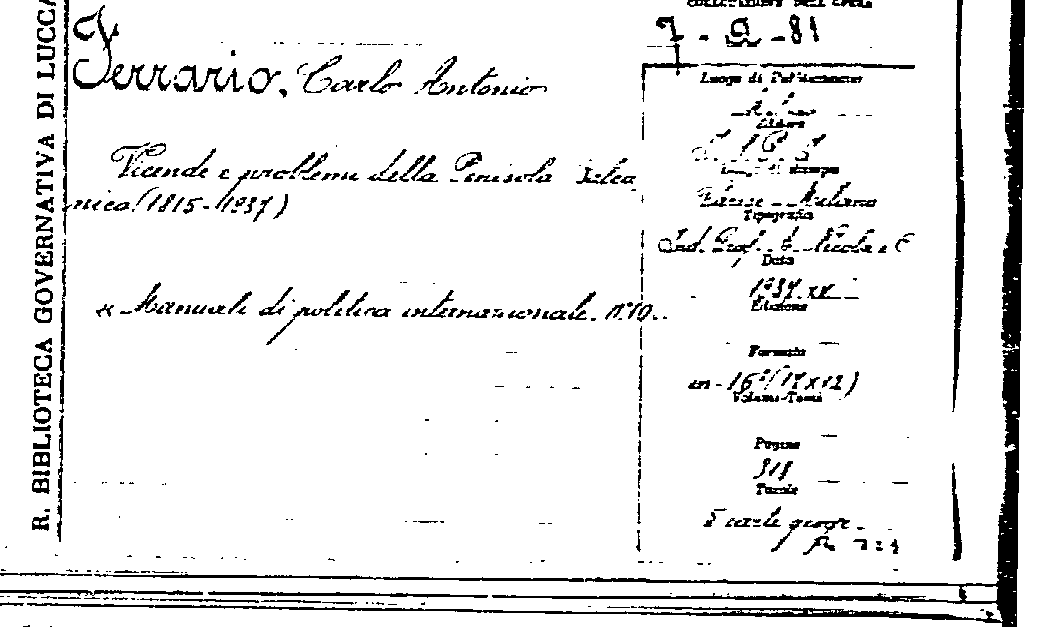 R. BIBLIOTECA GOVERNATIVA DI LUCCA
COLLOCAZIONE DELL'OPERA
7 - Q - 81
Ferrario, Carlo Antonio
Vicende e problemi della Penisola Balca
nica (1815-1937)
« Manuali di politica internazionale. N.10.
Luogo di Pubblicazione
Milano
Editore
Luogo di stampa
Varese - Milano
Tipografia
Ind. Graf. A. Nicola e C
Data
1937 XV
Edizione
Formato
in-16°(17x12)
Volumi-Tomi
Pagine
318
Tavole
5 carte geogr.